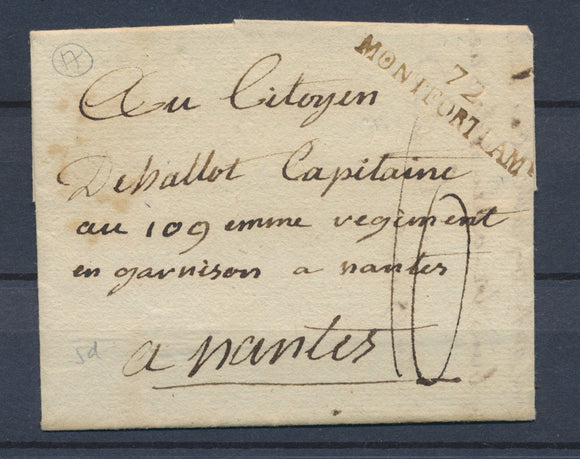 72
MONTFORT LAMY
Au Citoyen
Dehallot Capitaine
au 109 emme regiment
en garnison a nantes
a nantes
10
5d